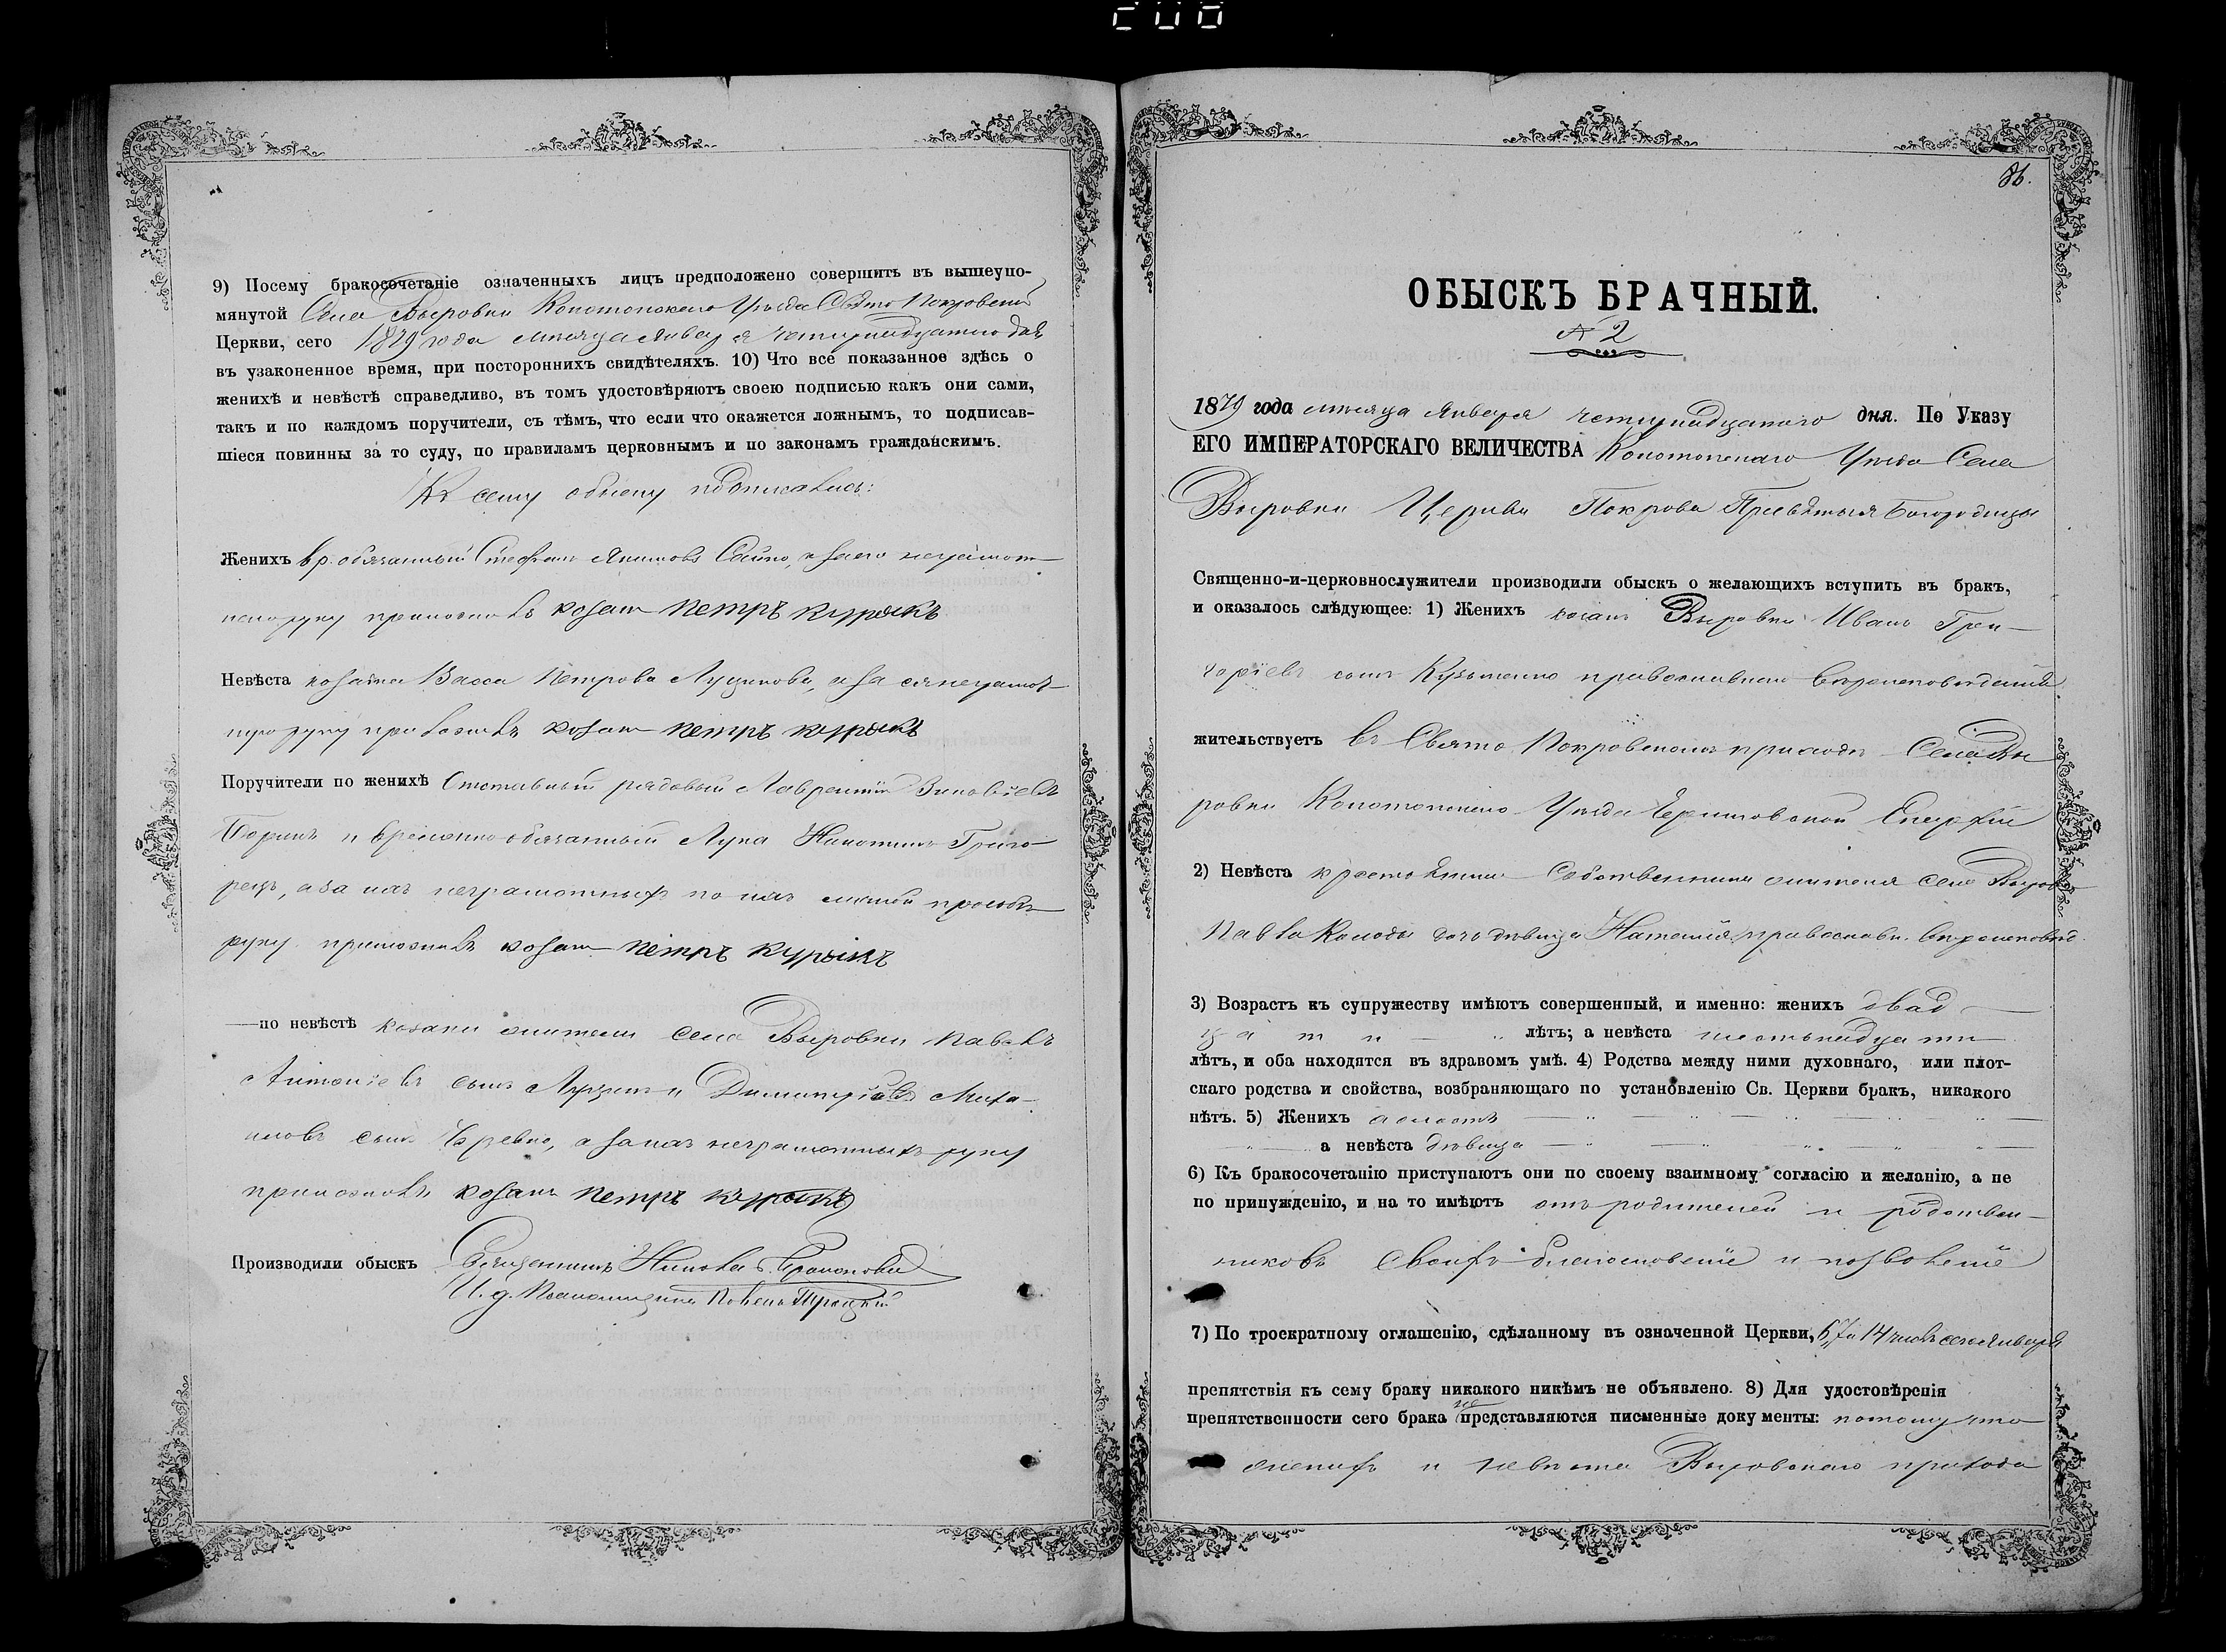 9) Посему бракосочетаніе означенныхъ лицъ предположено совершить въ вышеупо-
мянутой Села Выровки Конотопскаго Уѣзда Свято Покровской
Церкви, сего 1879 года мѣсяца Января четырнадцатого дня
въ узаконенное время, при постороннихъ свидѣтеляхъ. 10) Что все показанное здѣсь о
женихѣ и невѣстѣ справедливо, въ томъ удостовѣряютъ своею подписью какъ они сами,
такъ и по каждомъ поручители, съ тѣмъ, что если что окажется ложнымъ, то подписав-
шіеся повинны за то суду, по правиламъ церковнымъ и по законамъ гражданскимъ.
Къ сему обыску подписались:
Женихъ вр. обязанный Стефанъ Якимовъ Сайко, а за его неграмот-
ного руку приложилъ козакъ Петръ Курыкъ
Невѣста козачка Васса Петрова Луцикова, а за ея неграмот-
ную руку приложилъ козакъ Петръ Курыкъ
Поручители по женихѣ Отставный рядовый Лаврентій Зиновіевъ
и временно обязанный Лука Григо-
а за ихъ неграмотныхъ по ихъ личной просьбѣ
руку приложилъ козакъ Петръ Курыкъ
—по невѣстѣ козаки жители села Выровки Павелъ
Антоніевъ сынъ и Димитрій Миха-
иловъ сынъ а за ихъ неграмотныхъ руку
приложилъ козакъ Петръ Курыкъ
Производили обыскъ Священникъ Николай
И. д. Псаломщика Троцкій
86.
ОБЫСКЪ БРАЧНЫЙ.
№ 2
1879 года мѣсяца Января четырнадцатого дня. По Указу
ЕГО ИМПЕРАТОРСКАГО ВЕЛИЧЕСТВА Конотопскаго Уѣзда Села
Выровки Церкви Покрова Пресвятыя Богородицы
Священно-и-церковнослужители производили обыскъ о желающихъ вступить въ бракъ,
и оказалось слѣдующее: 1) Женихъ козакъ Выровки Иванъ Гри-
горіевъ сынъ Кузьменко православнаго вѣроисповѣданія
жительствуетъ въ Свято Покровскомъ приходѣ Села Вы
ровки Конотопскаго Уѣзда Черниговской Епархіи
2) Невѣста крестьянина Собственника жителя села Выровки
Павла Колоды дочь дѣвица Наталія православн. вѣроисповѣд.
3) Возрастъ къ супружеству имѣютъ совершенный, и именно: женихъ двад
цати лѣтъ; а невѣста шестьнадцати
лѣтъ, и оба находятся въ здравомъ умѣ. 4) Родства между ними духовнаго, или плот-
скаго родства и свойства, возбраняющаго по установленію Св. Церкви бракъ, никакого
нѣтъ. 5) Женихъ холостъ
а невѣста дѣвица
6) Къ бракосочетанію приступаютъ они по своему взаимному согласію и желанію, а не
по принужденію, и на то имѣютъ отъ родителей и родствен-
никовъ своихъ благословеніе и позволеніе
7) По троекратному оглашенію, сдѣланному въ означенной Церкви, 6, 7 и 14 числъ сего Января
препятствія къ сему браку никакого никѣмъ не объявлено. 8) Для удостовѣренія
препятственности сего брака не представляются писменные документы: потому что
женихъ и невѣста Выровскаго прихода